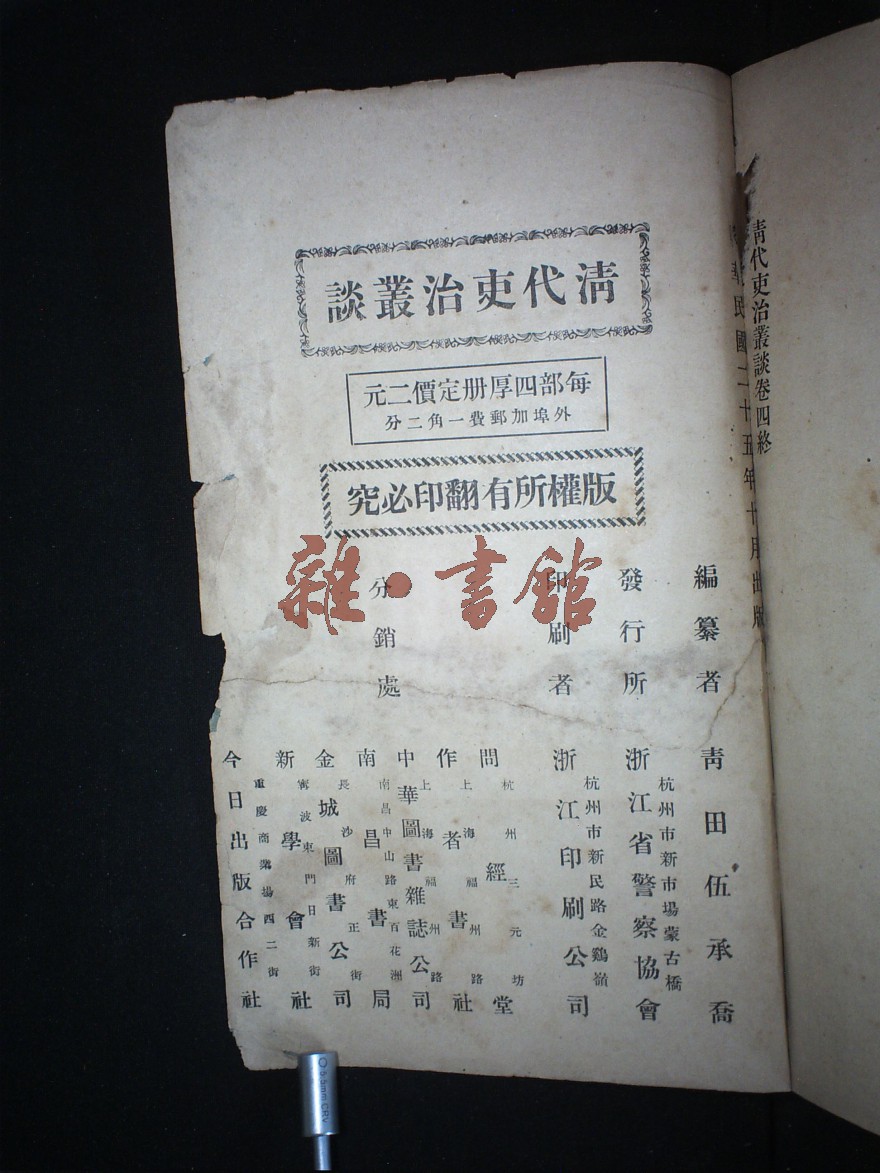 清代吏治叢談卷四終
民國二十五年十月出版
清代吏治叢談
每部四厚册定價二元
外埠加郵費一角二分
版權所有翻印必究
編纂者 靑田伍承喬
發行所 浙江省警察協會
杭州市新市場蒙古橋
印刷者 浙江印刷公司
杭州市新民路金鷄嶺
分銷處
問經堂
杭州三元坊
作者書社
上海福州路
中華圖書雜誌公司
上海福州路
南昌書局
南昌中山路東百花洲
金城圖書公司
長沙府正街
新學會社
寗波東門日新街
今日出版合作社
重慶商業場四二街
雜·書館
5.5mm CRV